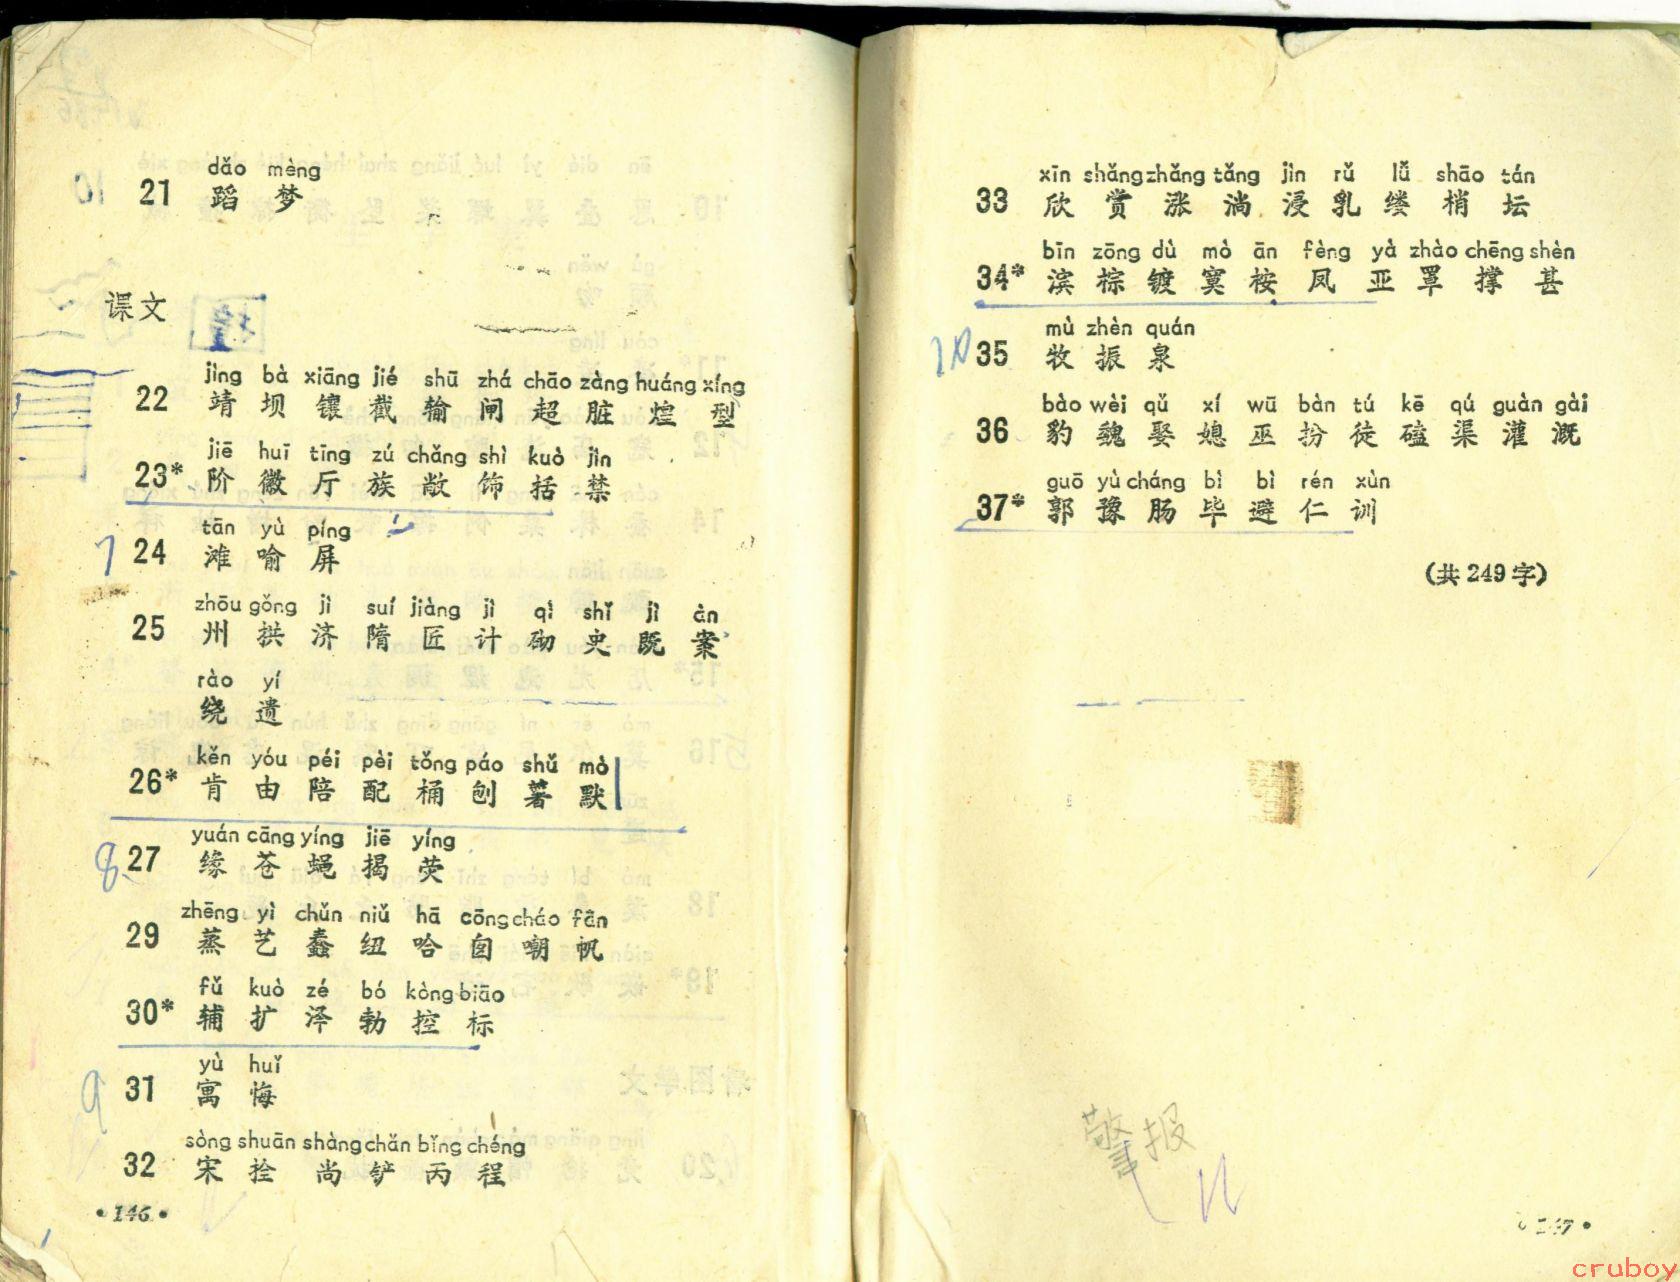 dǎo mèng
21 蹈 梦
课文
jìng bà xiāng jié shū zhá chāo zàng huáng xíng
22 靖 坝 镶 截 输 闸 超 脏 煌 型
jiē huī tīng zú chǎng shì kuò jìn
23* 阶 徽 厅 族 敞 饰 括 禁
tān yù píng
7 24 滩 喻 屏
zhōu gǒng jì suí jiàng jì qì shǐ jì àn
25 州 拱 济 隋 匠 计 砌 史 既 案
rào yí
绕 遗
kěn yóu péi pèi tǒng páo shǔ mò
26* 肯 由 陪 配 桶 刨 薯 默
yuán cāng yíng jiē yíng
8 27 缘 苍 蝇 揭 荧
zhēng yì chǔn niǔ hā cōng cháo fān
29 蒸 艺 蠢 纽 哈 囱 嘲 帆
fǔ kuò zé bó kòng biāo
30* 辅 扩 泽 勃 控 标
yù huǐ
9 31 寓 悔
sòng shuān shàng chǎn bǐng chéng
32 宋 拴 尚 铲 丙 程
•146•
xīn shǎng zhǎng tǎng jìn rǔ lǚ shāo tán
33 欣 赏 涨 淌 浸 乳 缕 梢 坛
bīn zōng dù mò ān fèng yà zhào chēng shèn
34* 滨 棕 镀 寞 桉 凤 亚 罩 撑 甚
mù zhèn quán
10 35 牧 振 泉
bào wèi qǔ xí wū bàn tú kē qú guàn gài
36 豹 魏 娶 媳 巫 扮 徒 磕 渠 灌 溉
guō yù cháng bì bì rén xùn
37* 郭 豫 肠 毕 避 仁 训
(共249字)
警报
147•
cruboy